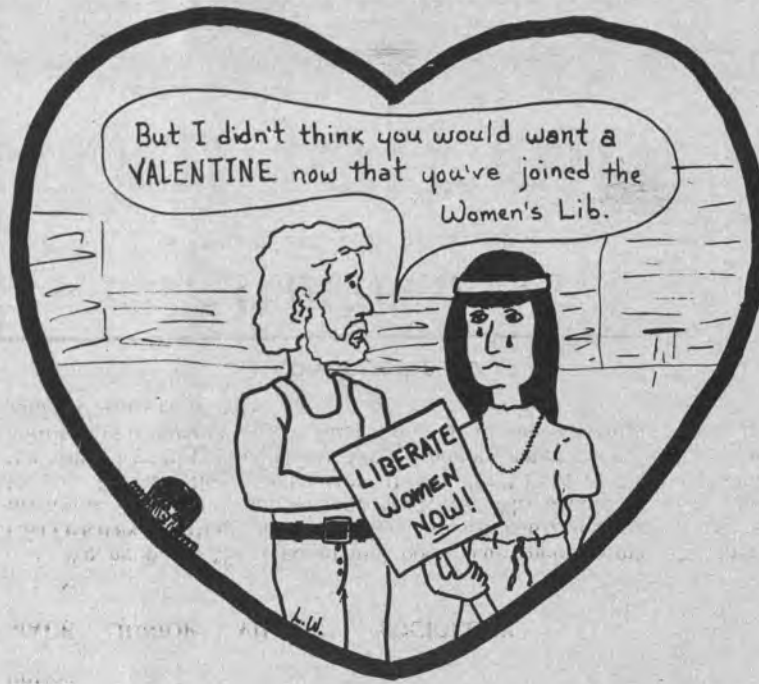 But I didn't think you would want a
VALENTINE now that you've joined the
Women's Lib.
LIBERATE
WOMEN
NOW!
L.W.